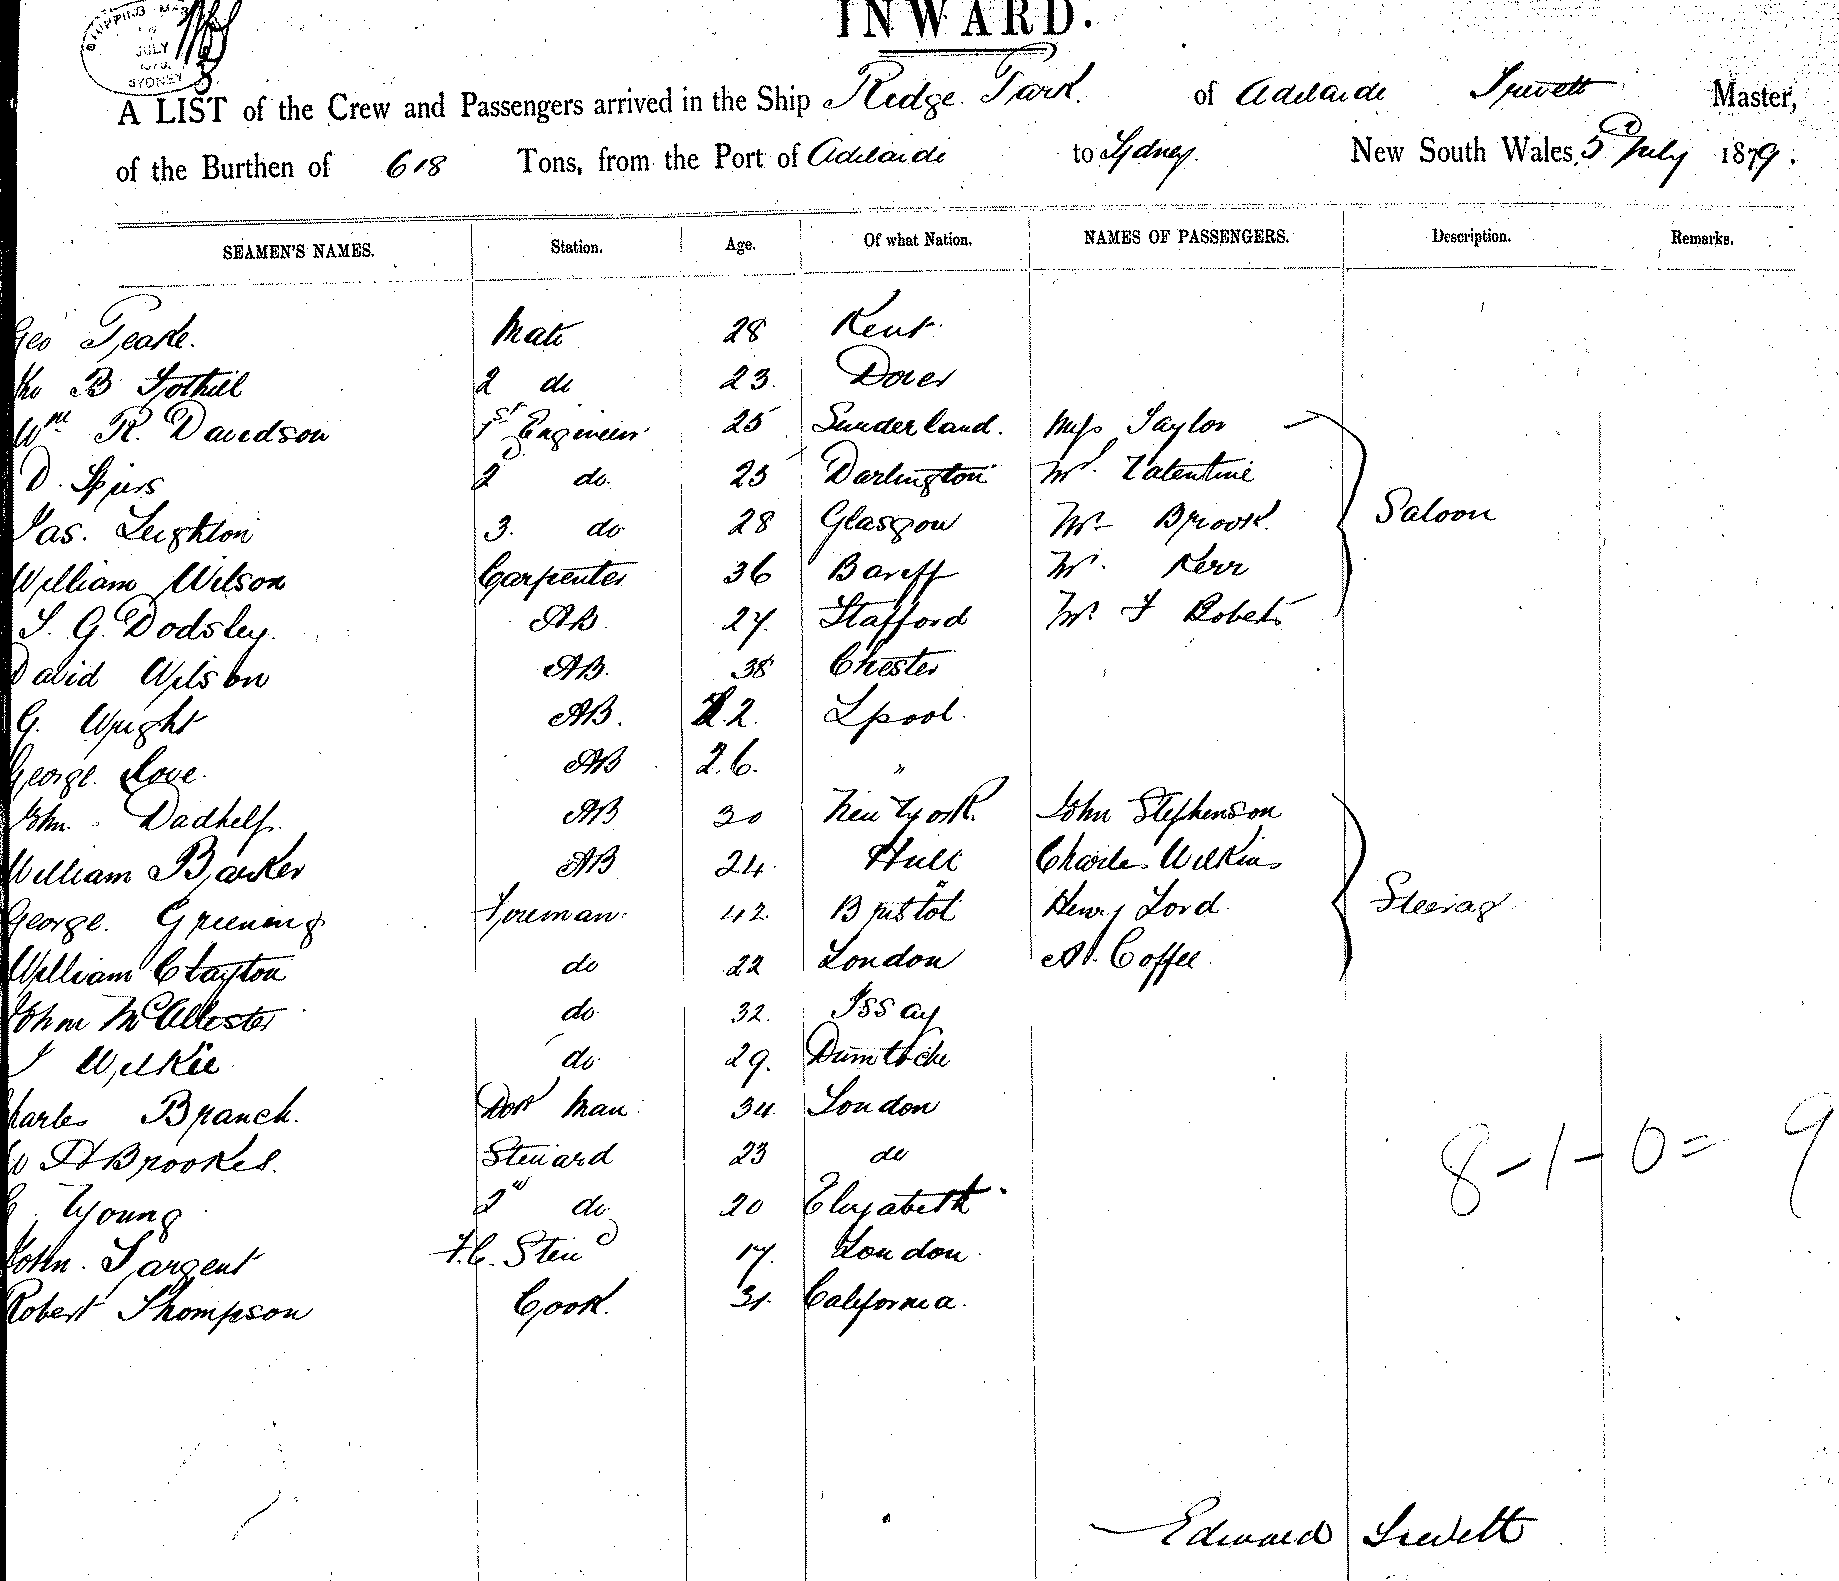 SHIPPING MAS
JULY
SYDNEY
INWARD.
A LIST of the Crew and Passengers arrived in the Ship Ridge Park. of Adelaide Trevett Master,
of the Burthen of 618 Tons, from the Port of Adelaide to Sydney. New South Wales, 5th July 1879.
SEAMEN'S NAMES. Station. Age. Of what Nation. NAMES OF PASSENGERS. Description. Remarks.
Geo Peake. Mate 28 Kent
B Tothill 2 do 23. Dover
Wm R. Davidson 1st Engineer 25 Sunderland. Miss Taylor
D. Spiers 2d do. 25 Darlington Mr. Valentine
Jas. Leighton 3. do 28 Glasgow Mr Brook. Saloon
William Wilson Carpenter 36 Banff Mr. Kerr
S. G. Dodsley. AB. 27. Stafford Mr F Roberts
David Wilson AB. 38 Chester
G. Wright AB. 22. Lpool.
George Love. AB 26. "
John Dadhelp. AB 30 New York. John Stephenson
William Barker AB 24. Hull Charles Wilkins
George. Greening Fireman. 42. Bristol Henry Lord Steerag
William Clayton do 22 London A. Coffee.
John McAllester do 32. Issay
J Wilkie do 29. 
Charles Branch. Dok Man 34. London
H Brookes. Steward 23 do
Young 2nd do. 20 Elizabeth
John. Sargent F.C. Stewd 17. London.
Robert Thompson Cook. 31. California.
8-1-0= 9
Edward Trevett